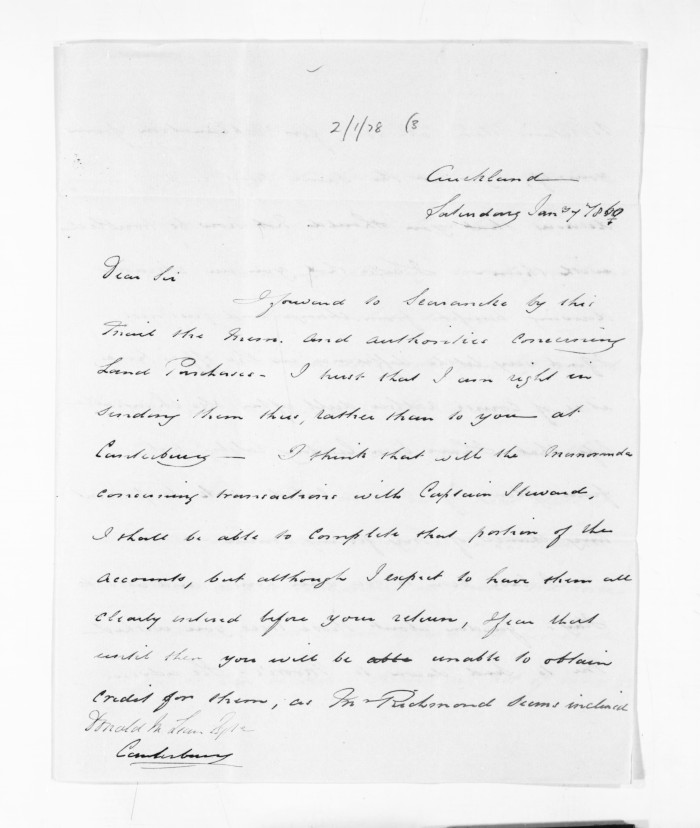 2/1/78 (3
Auckland
Saturday Jany 7 1860
Dear Sir
I forward to Taranaki by this
Mail the Mem. and authorities concerning
Land Purchases - I trust that I am right in
sending them thus, rather than to you at
Canterbury - I think that with the Memoranda
concerning transactions with Captain Steward,
I shall be able to complete that portion of the
accounts, but although I expect to have them all
clearly entered before your return, I fear that
until then you will be able unable to obtain
credit for them, as Mr Richmond seems inclined
Donald McLean Esqre
Canterbury